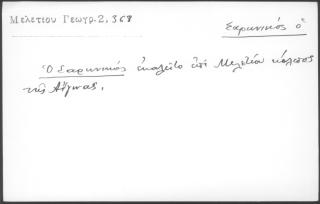 Μελετίου Γεωγρ.2,367
Σαρωνικός ὁ
Ὁ Σαρωνικὸς ἐκαλεῖτο ἐπὶ Μελετίου κόλπος
τῆς Αἰγίνας.